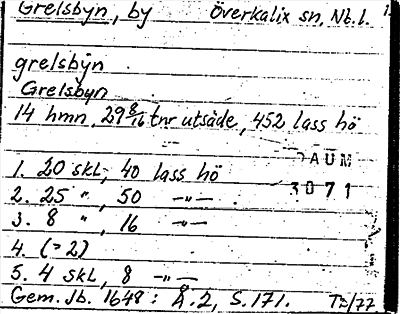 Grelsbyn, by Överkalix sn, Nb.l.
grelsbÿn
Grelsbyn
14 hmn, 29 8/16 tnr utsäde, 452 lass hö
AUM
3071
1. 20 skl, 40 lass hö
2. 25 " , 50 —"—
3. 8 " , 16 —"—
4. (=2)
5. 4 skl, 8 —"—
Gem. Jb. 1648: Å.2, S.171.